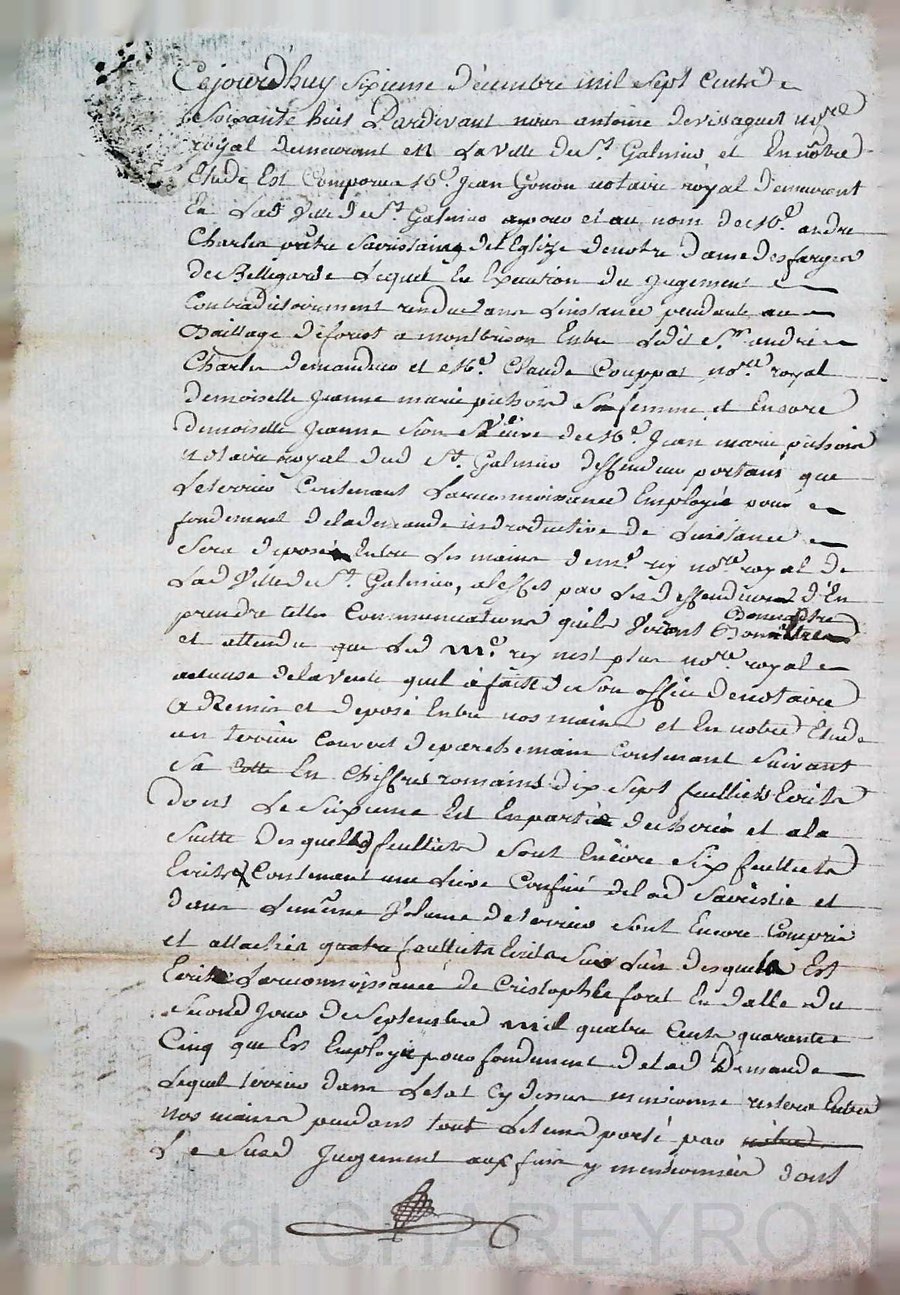 Cejourdhuy sixieme décembre mil sept cents
Soixante huit Pardevant nous antoine devissaguet no.re
royal demeurant en La Ville de S.t Galmier et En nôtre
Etude Est Comparu M.e Jean Gonon notaire royal demeurant
En Lad Ville de S.t Galmier et au nom de M.e andré
Charles prêtre Sacristain de lEglize de notre dame des farges
de Bellegarde Lequel En Execution du Jugement
Contradictoirement rendu dans Linstance pendante au
Baillage deforest a montbrison Entre Ledit S.r andré
Charles demandeur et M.e Claude Couppat no.re royal
demoiselle Jeanne marie pichon Sa femme et Encore
demoiselle Jeanne Veuve de M.e Jean marie pichon
notaire royal dud S.t Galmier deffendeur portant que
Leterrier Contenant Lareconnoissance Employée pour
fondement delademande introductive de Linstance
Sera deposé Entre Les mains de m.e rey no.re royal de
Lad Ville de S.t Galmier, aleffet par Les deffendeurs dEn
prendre telles Communications quils Verront Bonnestre
et attendu que Led m.e rey nest plus no.re royal
acause delavente quil à faitte de Son office denotaire
à Remis et deposé Entre nos mains et En notre Etude
un terrier Couvert deparchemain Contenant Suivant
Sa Cotte En Chiffres romains dix Sept feuillets Ecrits
dont Le Sixieme Est Enpartie dechiré et ala
Suitte desquels feuillets Sont Encore Six feuillets
Ecrits Contenant une Lieve Confiné delad Sacristie et
dans Lemême Volume deterrier Sont Encore Compris
et attachés quatre feuillets Ecrits Sur Lun desquels Est
Ecrite Lareconnoissance de Cristophle foret En datte du
Second Jour de Septembre mil quatre Cents quarante
Cinq que Est Employé pour fondement delad Demande
Lequel terrier dans Letat Cy dessus mentionné restera Entre
nos mains pendant tout Letems porté par
Le Susd Jugement aux fins y mentionnées dont
Pascal CHAREYRON